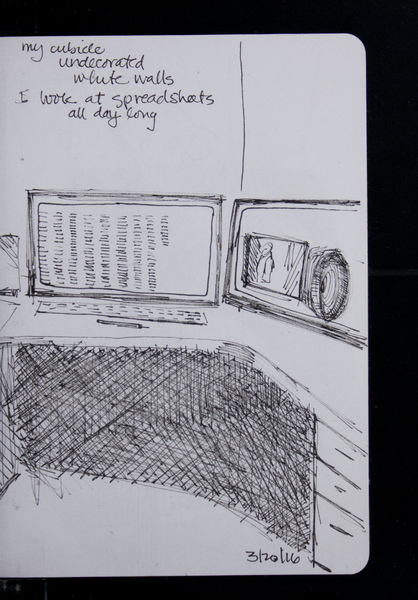 my cubicle
undecorated
white walls
I look at spreadsheets
all day long
3/20/16